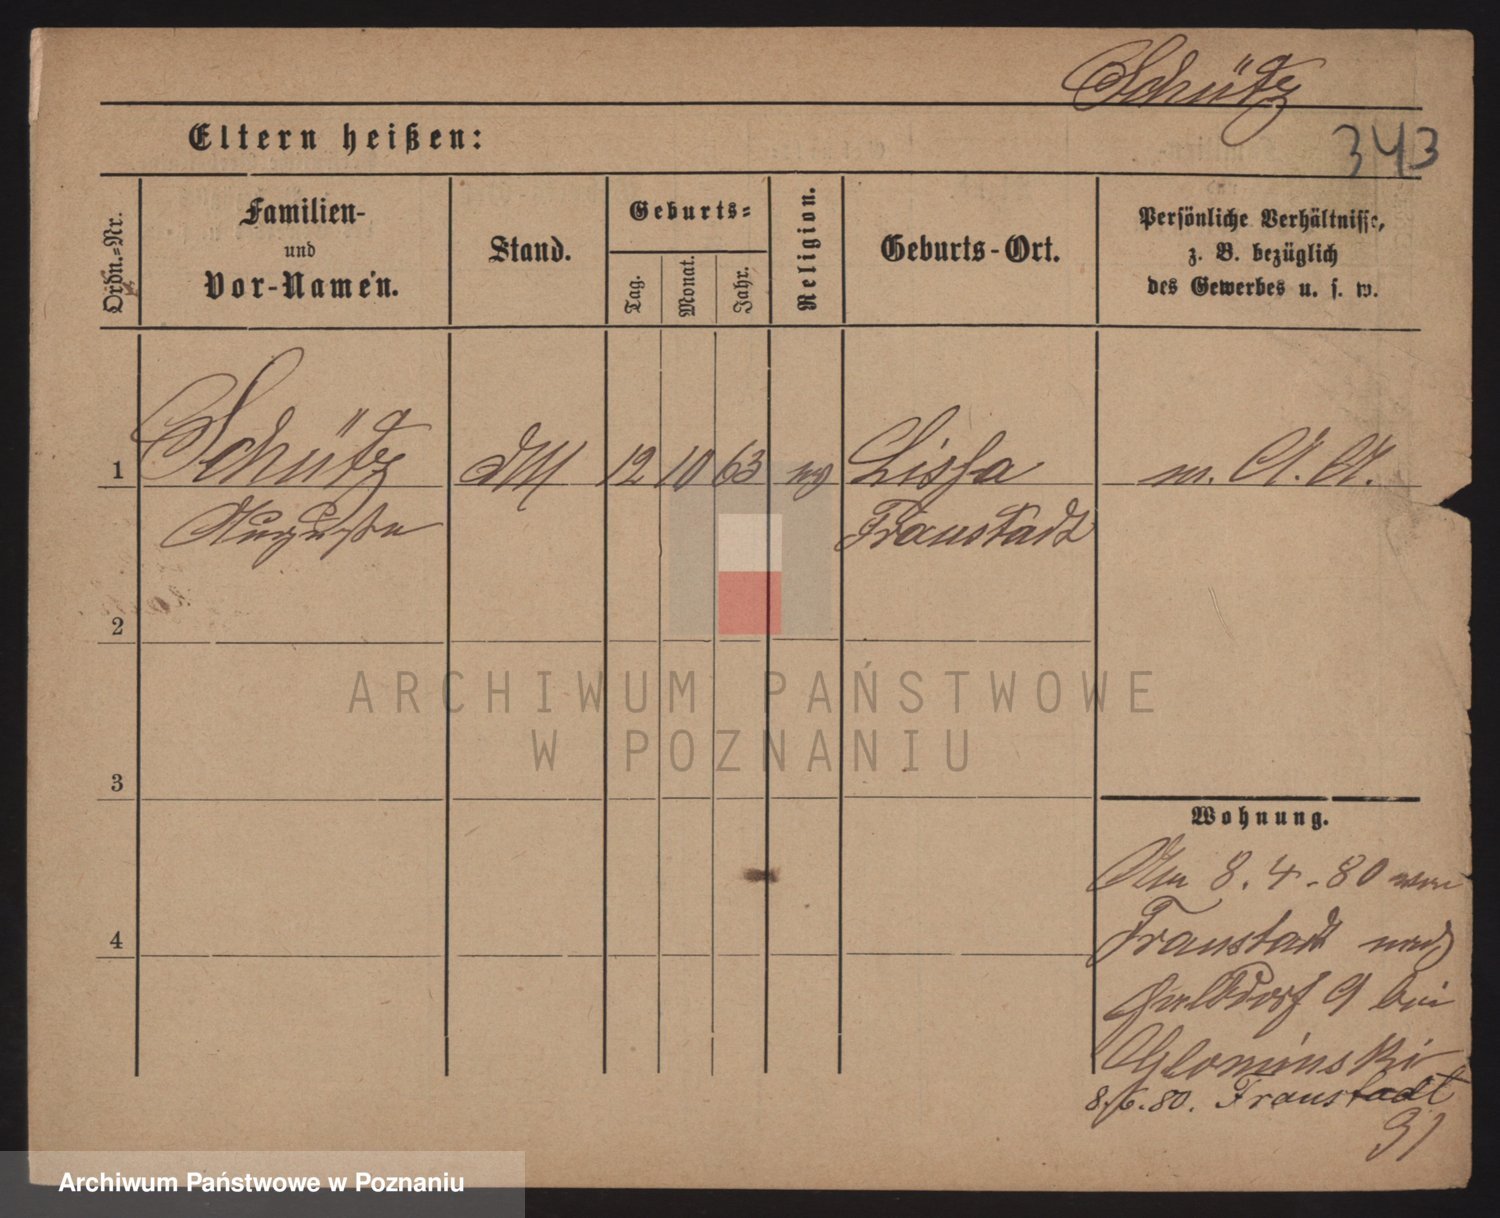 Schütz
Eltern heißen:
343
Ordn.-Nr.
Familien-
und
Vor-Namen.
Stand.
Geburts-
Tag.
Monat.
Jahr.
Religion.
Geburts-Ort.
Persönliche Verhältnisse,
z. B. bezüglich
des Gewerbes u. s. w.
1
Schütz
DM
12
10
63
Lissa
m. A. A.
Auguste
Fraustadt
2
ARCHIWUM PAŃSTWOWE
W POZNANIU
3
Wohnung.
Am 8. 4. 80 von
4
Fraustadt nach
9 bei
8.6.80. Fraustadt
91
Archiwum Państwowe w Poznaniu